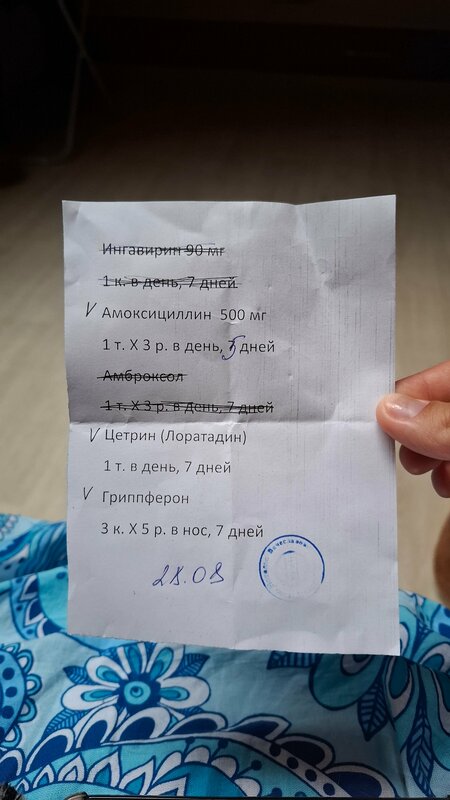 Ингавирин 90 мг
1 к. в день, 7 дней
V Амоксициллин 500 мг
1 т. Х 3 р. в день, 5 дней
Амброксол
1 т. Х 3 р. в день, 7 дней
V Цетрин (Лоратадин)
1 т. в день, 7 дней
V Гриппферон
3 к. Х 5 р. в нос, 7 дней
28.08